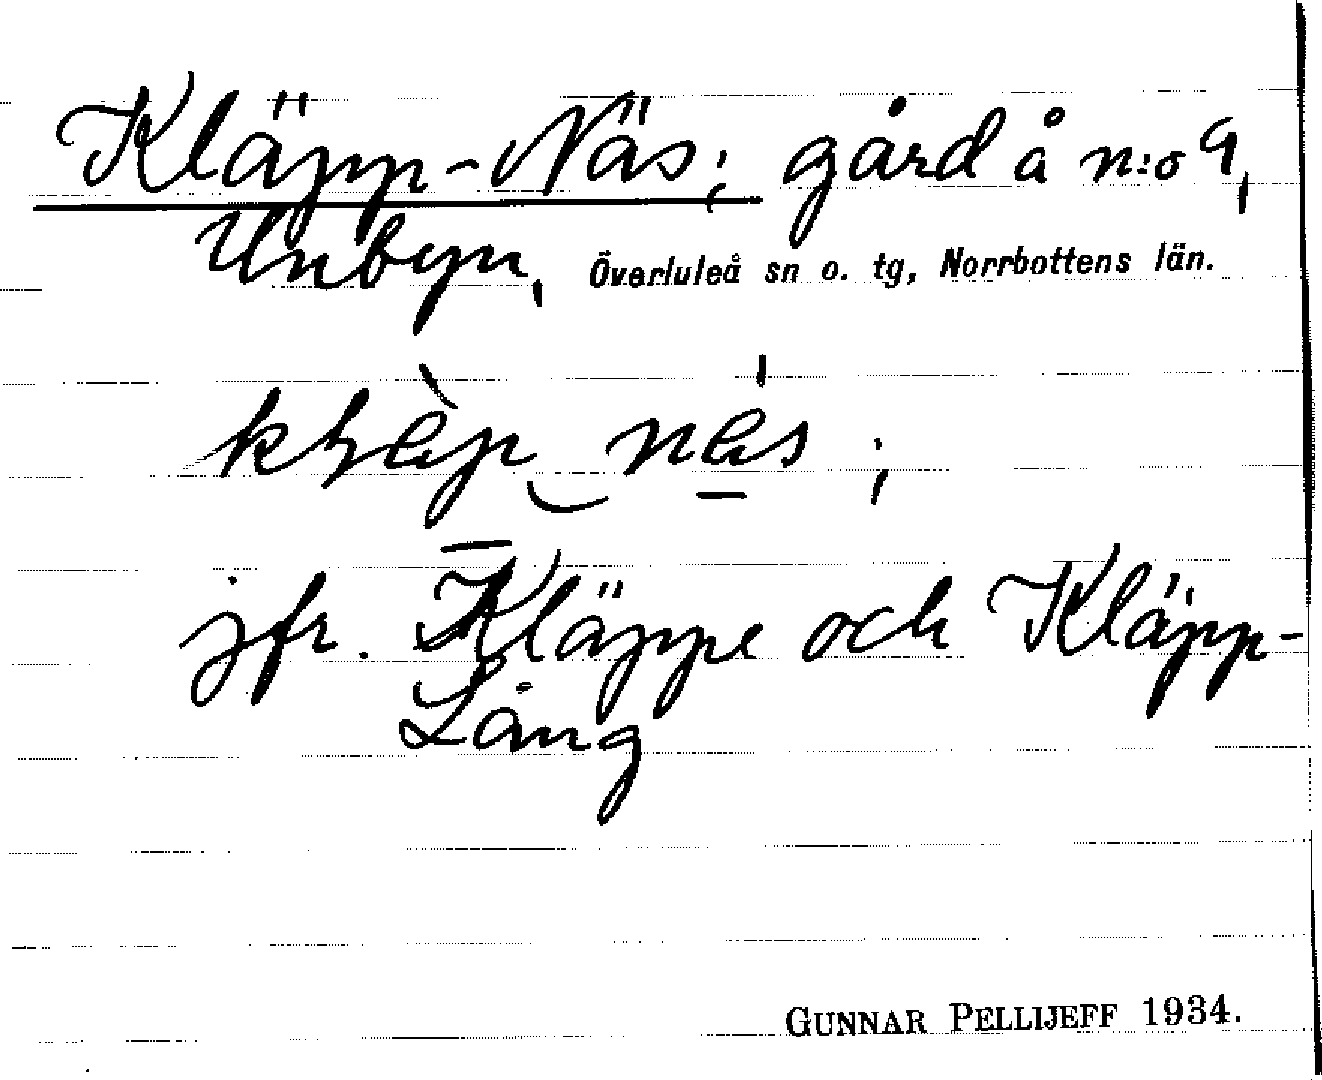 Kläpp-Näs; gård å n:o 9,
Unbyn, Överluleå sn o. tg, Norrbottens län.
näs;
jfr. Kläppe och Kläpp-
Lång
GUNNAR PELLIJEFF 1934.